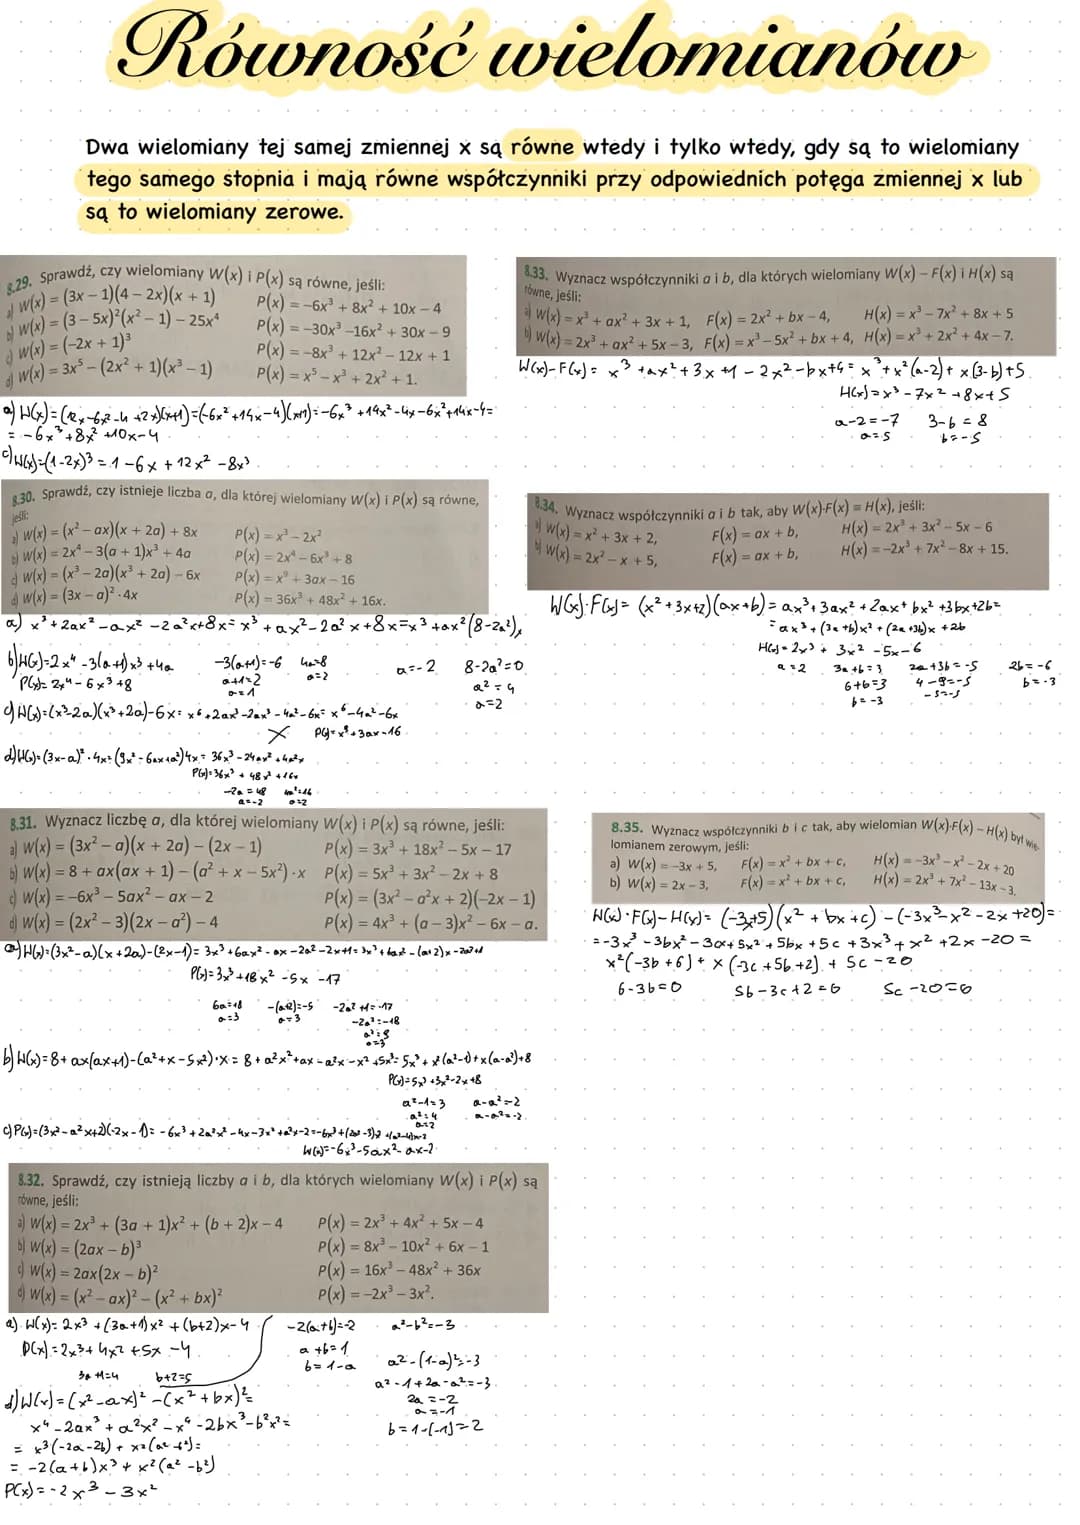 Równość wielomianów
Dwa wielomiany tej samej zmiennej x są równe wtedy i tylko wtedy, gdy są to wielomiany
tego samego stopnia i mają równe współczynniki przy odpowiednich potęga zmiennej x lub
są to wielomiany zerowe.
8.29. Sprawdź, czy wielomiany W(x) i P(x) są równe, jeśli:
a) W(x) = (3x – 1)(4 – 2x)(x + 1) P(x) = –6x³ + 8x² + 10x – 4
b) W(x) = (3 – 5x)²(x² – 1) – 25x⁴ P(x) = –30x³ –16x² + 30x – 9
c) W(x) = (–2x + 1)³ P(x) = –8x³ + 12x² – 12x + 1
d) W(x) = 3x⁵ – (2x² + 1)(x³ – 1) P(x) = x⁵ – x³ + 2x² + 1.
= -6x³+8x²+10x-4
c) W(x)=(1-2x)³ = 1-6x+12x²-8x³
8.30. Sprawdź, czy istnieje liczba a, dla której wielomiany W(x) i P(x) są równe,
jeśli:
a) W(x) = (x² – ax)(x + 2a) + 8x P(x) = x³ – 2x²
b) W(x) = 2x⁴ – 3(a + 1)x³ + 4a P(x) = 2x⁴ – 6x³ + 8
c) W(x) = (x³ – 2a)(x³ + 2a) – 6x P(x) = x⁹ + 3ax – 16
d) W(x) = (3x – a)² · 4x P(x) = 36x³ + 48x² + 16x.
a) x³+2ax²-ax²-2a²x+8x=x³+ax²-2a²x+8x=x³+ax²(8-2a²)x
b) W(x)=2x⁴-3(a+1)x³+4a -3(a+1)=-6 4a=8 a=-2 8-2a²=0
P(x)=2x⁴-6x³+8 a+1=2 a=2 a²=4
a=1 a=2
c) W(x)=(x³-2a)(x³+2a)-6x=x⁶+2ax³-2ax³-4a²-6x=x⁶-4a²-6x
P(x)=x⁹+3ax-16
d) W(x)=(3x-a)²·4x=(9x²-6ax+a²)4x=36x³-24ax²+4a²x
P(x)=36x³+48x²+16x
-2a=48 4a²=16
a=-2 a=2
8.31. Wyznacz liczbę a, dla której wielomiany W(x) i P(x) są równe, jeśli:
a) W(x) = (3x² – a)(x + 2a) – (2x – 1) P(x) = 3x³ + 18x² – 5x – 17
b) W(x) = 8 + ax(ax + 1) – (a² + x – 5x²) · x P(x) = 5x³ + 3x² – 2x + 8
c) W(x) = –6x³ – 5ax² – ax – 2 P(x) = (3x² – a²x + 2)(–2x – 1)
d) W(x) = (2x² – 3)(2x – a²) – 4 P(x) = 4x³ + (a – 3)x² – 6x – a.
a) W(x)=(3x²-a)(x+2a)-(2x-1)=3x³+6ax²-ax-2a²-2x+1=3x³+6ax²-(a+2)x-2a²+1
P(x)=3x³+18x²-5x-17
6a=18 -(a+2)=-5 -2a²+1=-17
a=3 a=3 -2a²=-18
a²=9
a=3
b) W(x)=8+ax(ax+1)-(a²+x-5x²)·x=8+a²x²+ax-a²x-x²+5x³=5x³+x²(a²-1)+x(a-a²)+8
P(x)=5x³+3x²-2x+8
a²-1=3 a-a²=-2
a²=4 a-a²=-2
a=2
W(x)=-6x³-5ax²-ax-2
8.32. Sprawdź, czy istnieją liczby a i b, dla których wielomiany W(x) i P(x) są
równe, jeśli:
a) W(x) = 2x³ + (3a + 1)x² + (b + 2)x – 4 P(x) = 2x³ + 4x² + 5x – 4
b) W(x) = (2ax – b)³ P(x) = 8x³ – 10x² + 6x – 1
c) W(x) = 2ax(2x – b)² P(x) = 16x³ – 48x² + 36x
d) W(x) = (x² – ax)² – (x² + bx)² P(x) = –2x³ – 3x².
a) W(x)=2x³+(3a+1)x²+(b+2)x-4
P(x)=2x³+4x²+5x-4
3a+1=4 b+2=5
d) W(x)=(x²-ax)²-(x²+bx)²=
x⁴-2ax³+a²x²-x⁴-2bx³-b²x²=
= x³(-2a-2b)+x²(a²-b²)=
= -2(a+b)x³+x²(a²-b²)
P(x)=-2x³-3x²
-2(a+b)=-2 a²-b²=-3
a+b=1
b=1-a a²-(1-a)²=-3
a²-1+2a-a²=-3
2a=-2
a=-1
b=1-(-1)=2
8.33. Wyznacz współczynniki a i b, dla których wielomiany W(x) – F(x) i H(x) są
równe, jeśli:
a) W(x) = x³ + ax² + 3x + 1, F(x) = 2x² + bx – 4, H(x) = x³ – 7x² + 8x + 5
b) W(x) = 2x³ + ax² + 5x – 3, F(x) = x³ – 5x² + bx + 4, H(x) = x³ + 2x² + 4x – 7.
W(x)-F(x)= x³+ax²+3x+1-2x²-bx+4= x³+x²(a-2)+x(3-b)+5
H(x)=x³-7x²+8x+5
a-2=-7 3-b=8
a=5 b=-5
8.34. Wyznacz współczynniki a i b tak, aby W(x)·F(x) = H(x), jeśli:
a) W(x) = x² + 3x + 2, F(x) = ax + b, H(x) = 2x³ + 3x² – 5x – 6
b) W(x) = 2x² – x + 5, F(x) = ax + b, H(x) = –2x³ + 7x² – 8x + 15.
W(x)·F(x)= (x²+3x+2)(ax+b)= ax³+3ax²+2ax+bx²+3bx+2b=
=ax³+(3a+b)x²+(2a+3b)x+2b
H(x)=2x³+3x²-5x-6
a=2 3a+b=3 2a+3b=-5 2b=-6
6+b=3 4-9=-5 b=-3
b=-3 -5=-5
8.35. Wyznacz współczynniki b i c tak, aby wielomian W(x)·F(x) – H(x) był wie-
lomianem zerowym, jeśli:
a) W(x) = –3x + 5, F(x) = x² + bx + c, H(x) = –3x³ – x² – 2x + 20
b) W(x) = 2x – 3, F(x) = x² + bx + c, H(x) = 2x³ + 7x² – 13x – 3.
W(x)·F(x)-H(x)= (-3x+5)(x²+bx+c)-(-3x³-x²-2x+20)=
=-3x³-3bx²-3cx+5x²+5bx+5c+3x³+x²+2x-20=
x²(-3b+6)+x(-3c+5b+2)+5c-20
6-3b=0 5b-3c+2=0 5c-20=0